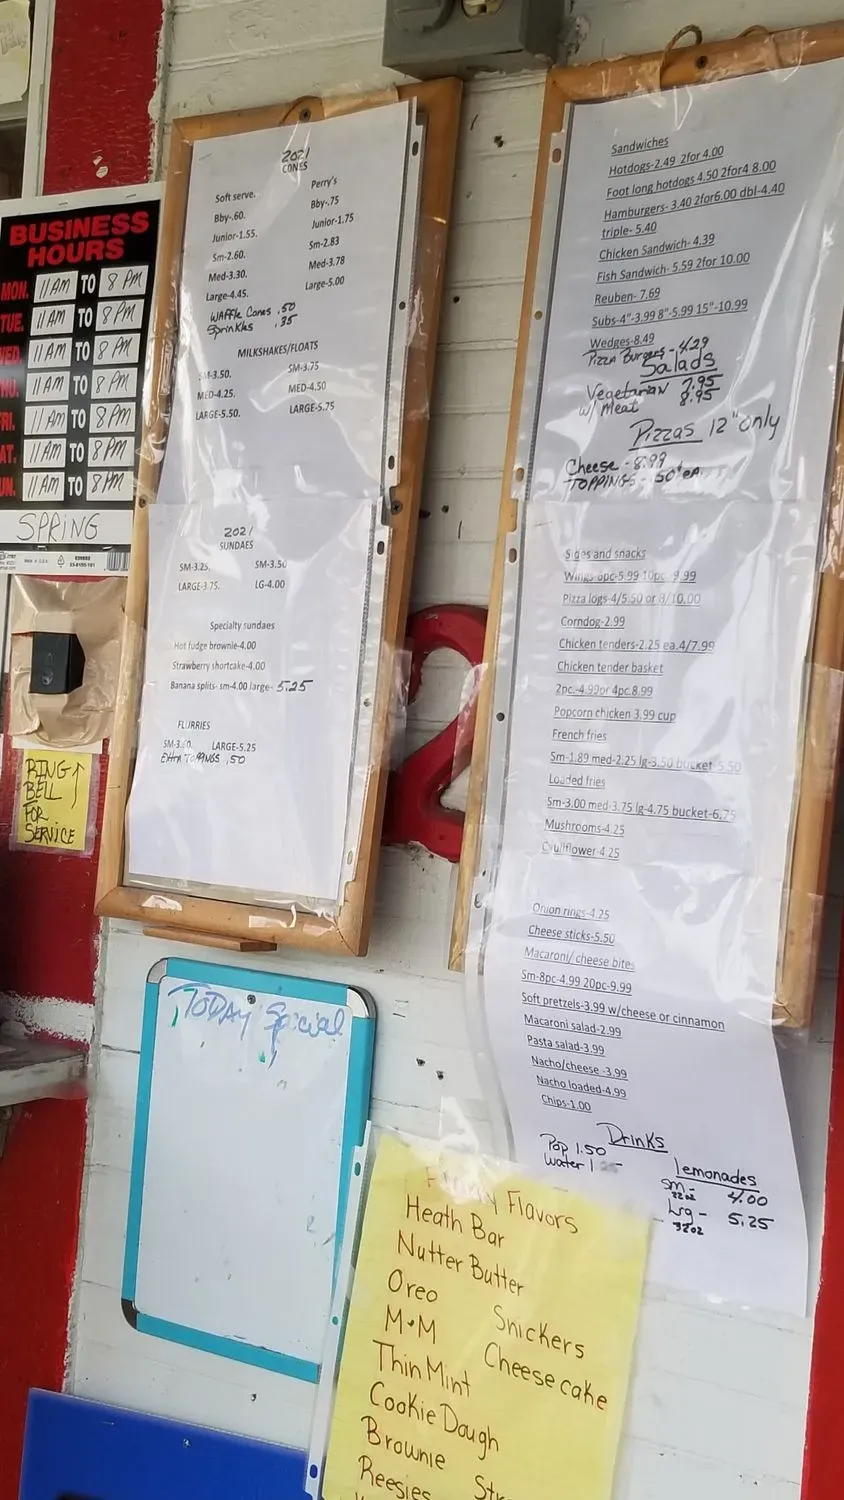 BUSINESS
HOURS
MON. 11AM TO 8PM
TUE. 11AM TO 8PM
WED. 11AM TO 8PM
THU. 11AM TO 8PM
FRI. 11AM TO 8PM
SAT. 11AM TO 8PM
SUN. 11AM TO 8PM
SPRING
RING
BELL
FOR
SERVICE
2021
CONES
Soft serve. Perry's
Bby-.60. Bby-.75
Junior-1.55. Junior-1.75
Sm-2.60. Sm-2.83
Med-3.30. Med-3.78
Large-4.45. Large-5.00
WAFFLE CONES .50
Sprinkles .35
MILKSHAKES/FLOATS
SM-3.50. SM-3.75
MED-4.25. MED-4.50
LARGE-5.50. LARGE-5.75
2021
SUNDAES
SM-3.25. SM-3.50
LARGE-3.75. LG-4.00
Specialty sundaes
Hot fudge brownie-4.00
Strawberry shortcake-4.00
Banana splits- sm-4.00 large- 5.25
FLURRIES
LARGE-5.25
EXtra TOPPINGS .50
2
Sandwiches
Hotdogs-2.49 2for 4.00
Foot long hotdogs 4.50 2for4 8.00
Hamburgers- 3.40 2for6.00 dbl-4.40
triple- 5.40
Chicken Sandwich- 4.39
Fish Sandwich- 5.59 2for 10.00
Reuben- 7.69
Subs-4"-3.99 8"-5.99 15"-10.99
Wedges-8.49
Pizza Burgers - 4.29
Salads
Vegetarian 7.95
w/ Meat 8.95
Pizzas 12" only
Cheese - 8.99
TOPPINGS - .50¢ ea.
Sides and snacks
Wings 10pc 9.99
Pizza logs-4/5.50 or 8/10.00
Corndog-2.99
Chicken tenders-2.25 ea.4/7.99
Chicken tender basket
2pc.-4.99or 4pc.8.99
Popcorn chicken 3.99 cup
French fries
Sm-1.89 med-2.25 lg-3.50 bucket-5.50
Loaded fries
Sm-3.00 med-3.75 lg-4.75 bucket-6.75
Mushrooms-4.25
Caulliflower-4.25
Onion rings-4.25
Cheese sticks-5.50
Macaroni/ cheese bites
Sm-8pc-4.99 20pc-9.99
Soft pretzels-3.99 w/cheese or cinnamon
Macaroni salad-2.99
Pasta salad-3.99
Nacho/cheese -3.99
Nacho loaded-4.99
Chips-1.00
Drinks
Pop 1.50
Water
Lemonades
sm- 4.00
22oz
Lrg - 5.25
32oz
TODAY Special
Flavors
Heath Bar
Nutter Butter
Oreo Snickers
M•M Cheesecake
Thin Mint
Cookie Dough
Brownie
Reesies